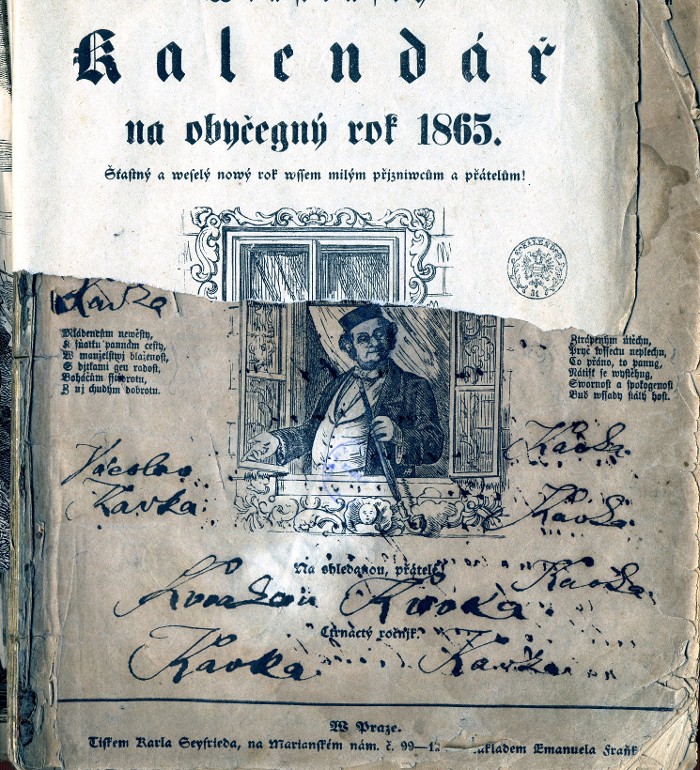 Kalendář
na obyčegný rok 1865.
Šťastný a weselý nowý rok wssem milým přjzniwcům a přátelům!
KALENDER
Kavka
Mládencům newěsty,
K sňatku pannám cesty,
W manželstwj blaženost,
S djtkami gen radost,
Boháčům
Z nj chudým dobrotu.
Ztrápeným útěchu,
Pryč wssecku neplechu,
Co přáno, to panug,
Nátisk se
Swornost a spokogenost
Bud wssady stálý host.
Václav
Kavka
Kavka
Kavka
Na shledanou, přátelé
Kavka
Kavka
Čtrnáctý ročník.
Kavka
Kavka
W Praze.
Tiskem Karla Seyfrieda, na Marianském nám. č. 99— nákladem Emanuela